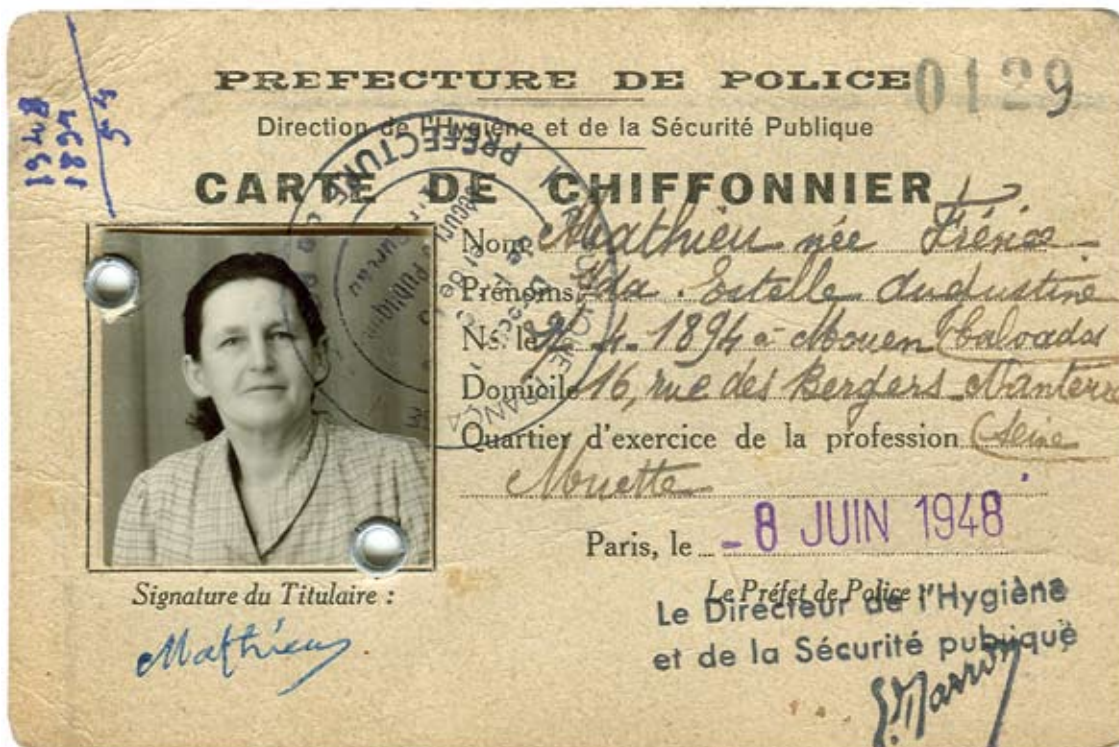 PREFECTURE DE POLICE 0129
Direction de l'Hygiène et de la Sécurité Publique
CARTE DE CHIFFONNIER
1948
1894
54
Nom Mathieu née
Prénoms Ida Estelle Augustine
Né le 4-1894 à Mouen (Calvados
Domicile 16, rue des Bergers Nanterre
Quartier d'exercice de la profession (Seine
Muette
Paris, le - 8 JUIN 1948
Signature du Titulaire :
Le Préfet de Police :
Mathieu
Le Directeur de l'Hygiène
et de la Sécurité publique